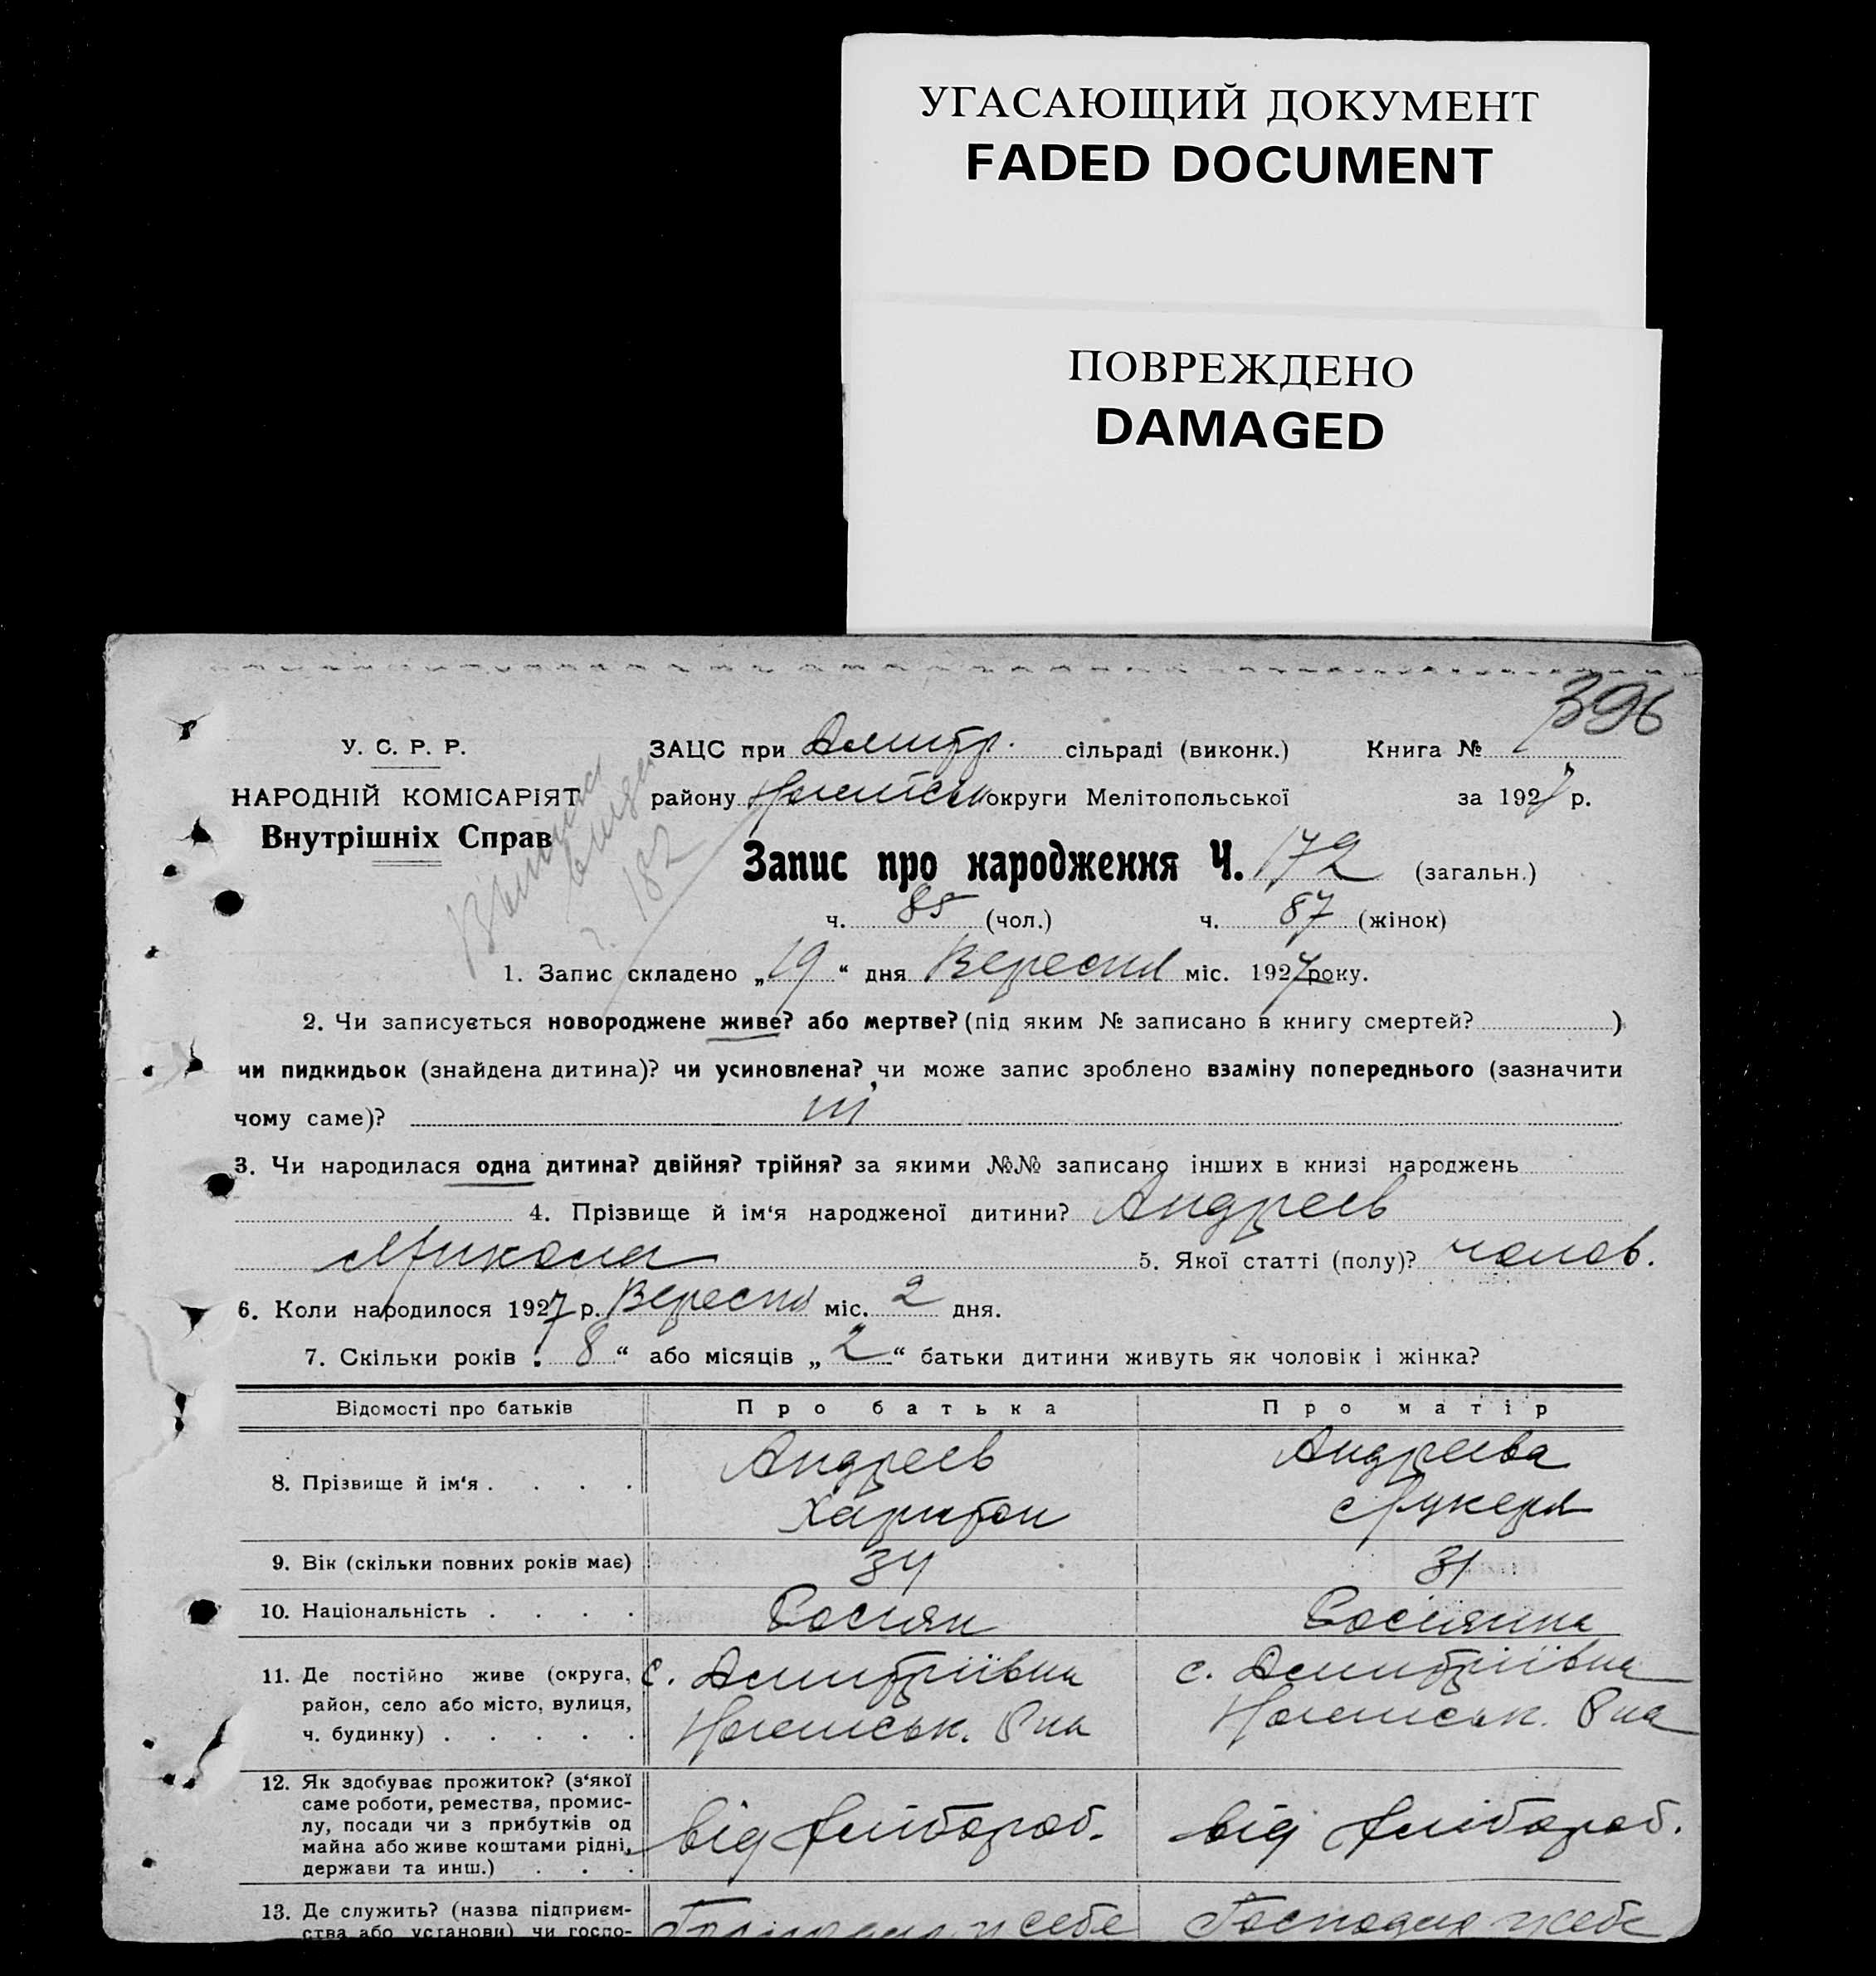 УГАСАЮЩИЙ ДОКУМЕНТ
FADED DOCUMENT
ПОВРЕЖДЕНО
DAMAGED
396
У. С. Р. Р.
НАРОДНІЙ КОМІСАРІЯТ
Внутрішніх Справ
ЗАЦС при Дмитр. сільраді (виконк.) Книга №
району округи Мелітопольської за 1927 р.
182
Запис про народження Ч. 172 (загальн.)
ч. 85 (чол.) ч. 87 (жінок)
1. Запис складено „19“ дня Вересня міс. 1927 року.
2. Чи записується новороджене живе? або мертве? (під яким № записано в книгу смертей? )
чи пидкидьок (знайдена дитина)? чи усиновлена? чи може запис зроблено взаміну попереднього (зазначити
чому саме)?
3. Чи народилася одна дитина? двійня? трійня? за якими №№ записано інших в книзі народжень
4. Прізвище й ім‘я народженої дитини? Андреев
Микола 5. Якої статті (полу)? чолов.
6. Коли народилося 1927 р. Вересня міс. 2 дня.
7. Скільки років „8“ або місяців „2“ батьки дитини живуть як чоловік і жінка?
Відомості про батьків Про батька Про матір
8. Прізвище й ім‘я . . . . Андреев Андреева
Харитон Лукеря
9. Вік (скільки повних років має) 34 31
10. Національність . . . . Росіян Росіянка
11. Де постійно живе (округа, с. Дмитріївка с. Дмитріївка
район, село або місто, вулиця,
ч. будинку) . . . . . Р на Р на
12. Як здобуває прожиток? (з‘якої
саме роботи, ремества, промис-
лу, посади чи з прибутків од
майна або живе коштами рідні, від хлібороб. від хлібороб.
держави та инш.) . . .
13. Де служить? (назва підприєм-
ства або установи) чи госпо- у себе у себе